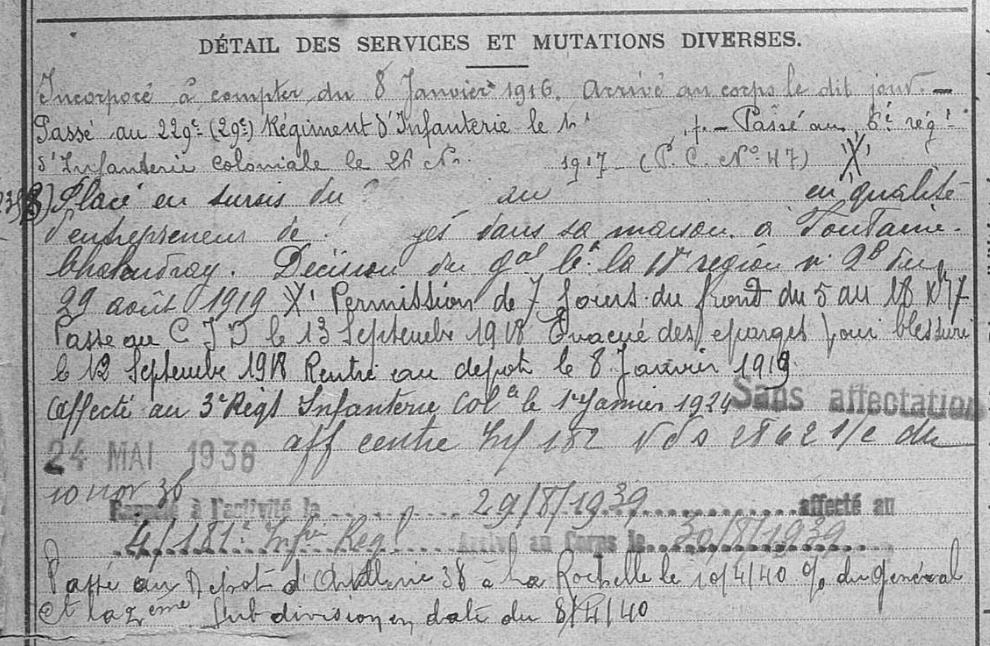 DÉTAIL DES SERVICES ET MUTATIONS DIVERSES.
Incorporé à compter du 8 Janvier 1916. Arrivé au corps le dit jour. —
Passé au 229e (29e) Régiment d'Infanterie le — Passé au régt
d'Infanterie coloniale le 1917 — (P. C. No 47)
Placé en sursis du au en qualité
d'entrepreneur de dans sa maison à Fontaine-
Chalendray. Décision du gal la région du
29 août 1919 Permission de 7 Jours du front du 5 au 18
Passé au C I D le 13 Septembre 1918 Evacué des eparges pour blessure
le 12 Septembre 1918 Rentré au depot le 8 Janvier 1919
affecté au 3e Régt Infanterie Colle le 1er Janvier 1924 Sans affectation
24 MAI 1936 aff centre Inf 182 du
10 nov 36 Rappelé à l'activité le 29/8/1939 affecté au
4/181e Infie Regl Arrivé au Corps le 30/8/1939
Passé au Depot d'Artillerie 38 à La Rochelle le 10/4/40 du Général
Ct la 2ème Subdivision en date du 8/4/40